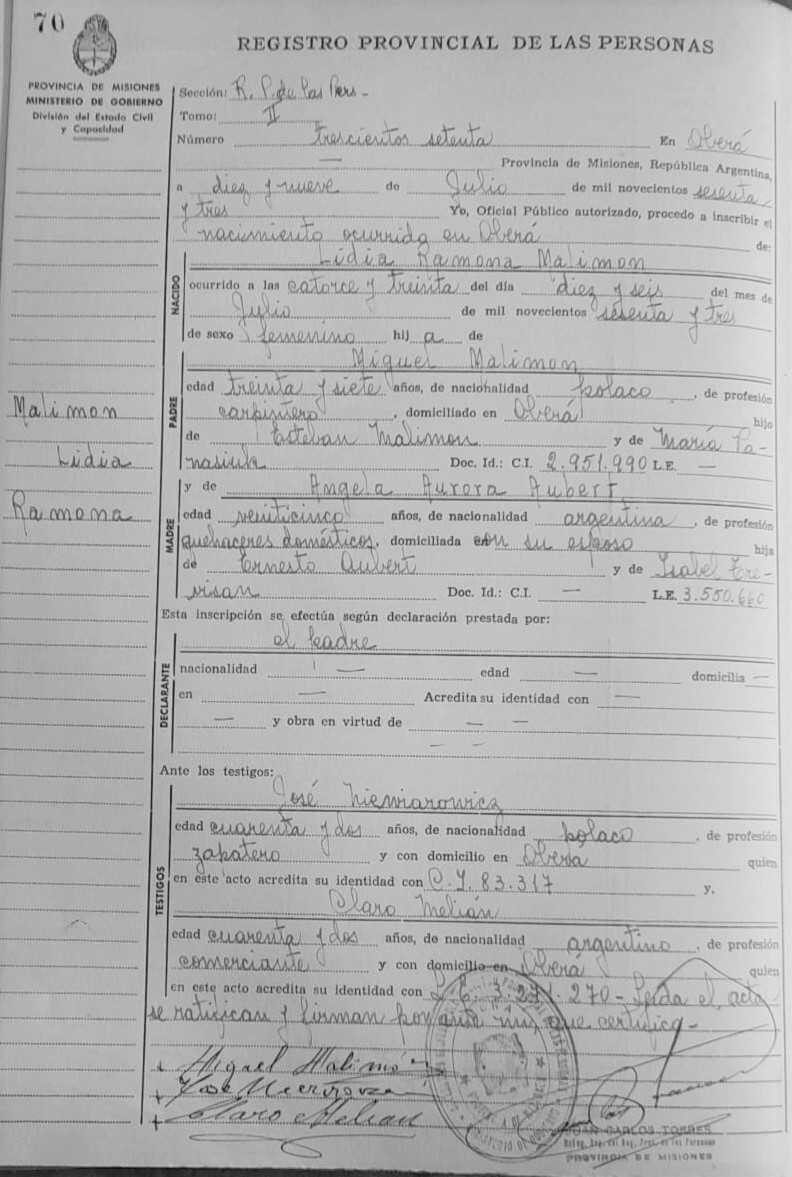 70
REGISTRO PROVINCIAL DE LAS PERSONAS
PROVINCIA DE MISIONES
MINISTERIO DE GOBIERNO
División del Estado Civil
y Capacidad
Sección: R. P. de las Pers -
Tomo: II
Número trescientos setenta En Oberá
— Provincia de Misiones, República Argentina,
a diez y nueve de Julio de mil novecientos sesenta
y tres Yo, Oficial Público autorizado, procedo a inscribir el
nacimiento ocurrida en Oberá de:
NACIDO
Lidia Ramona Malimon
ocurrido a las catorce y treinta del día diez y seis del mes de
Julio de mil novecientos sesenta y tres
de sexo femenino hija de
PADRE
Miguel Malimon
edad treinta y siete años, de nacionalidad polaco, de profesión
carpintero, domiciliado en Oberá hijo
de Esteban Malimon y de María Pa-
nasiuk Doc. Id.: C.I. 2.951.990 L.E. —
Malimon
Lidia
Ramona
MADRE
y de Angela Aurora Aubert
edad veinticinco años, de nacionalidad argentina, de profesión
quehaceres domésticos, domiciliada en con su esposo hija
de Ernesto Aubert y de Isabel Tre-
visan Doc. Id.: C.I. — L.E. 3.550.660
Esta inscripción se efectúa según declaración prestada por:
DECLARANTE
el padre
nacionalidad — edad — domicilia —
en — Acredita su identidad con —
— y obra en virtud de — —
— —
Ante los testigos:
TESTIGOS
José Niewiarowicz
edad cuarenta y dos años, de nacionalidad polaco, de profesión
zapatero y con domicilio en Oberá quien
en este acto acredita su identidad con C.I. 83.317 y,
Claro Melián
edad cuarenta y dos años, de nacionalidad argentino, de profesión
comerciante y con domicilio en Oberá quien
en este acto acredita su identidad con L.E. 3.271.270 - Leída el acta
se ratifican y firman por ante mí que certifico -
+ Miguel Malimón
+ José
+ Claro Melian
JUAN CARLOS TORRES
PROVINCIA DE MISIONES